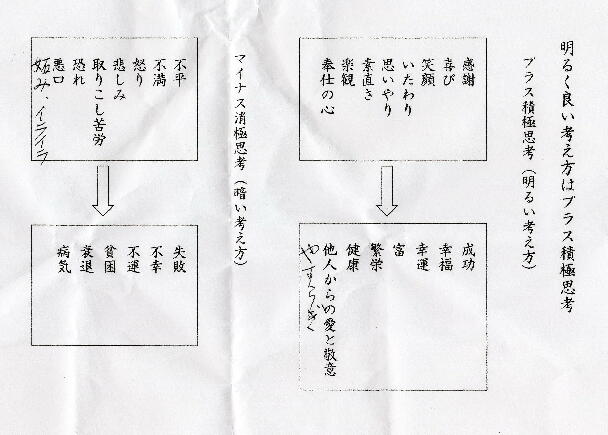 明るく良い考え方はプラス積極思考
プラス積極思考（明るい考え方）
感謝
喜び
笑顔
いたわり
思いやり
素直さ
楽観
奉仕の心
成功
幸福
幸運
富
繁栄
健康
他人からの愛と敬意
マイナス消極思考（暗い考え方）
不平
不満
怒り
悲しみ
取りこし苦労
恐れ
悪口
妬み、イライラ
失敗
不幸
不運
貧困
衰退
病気